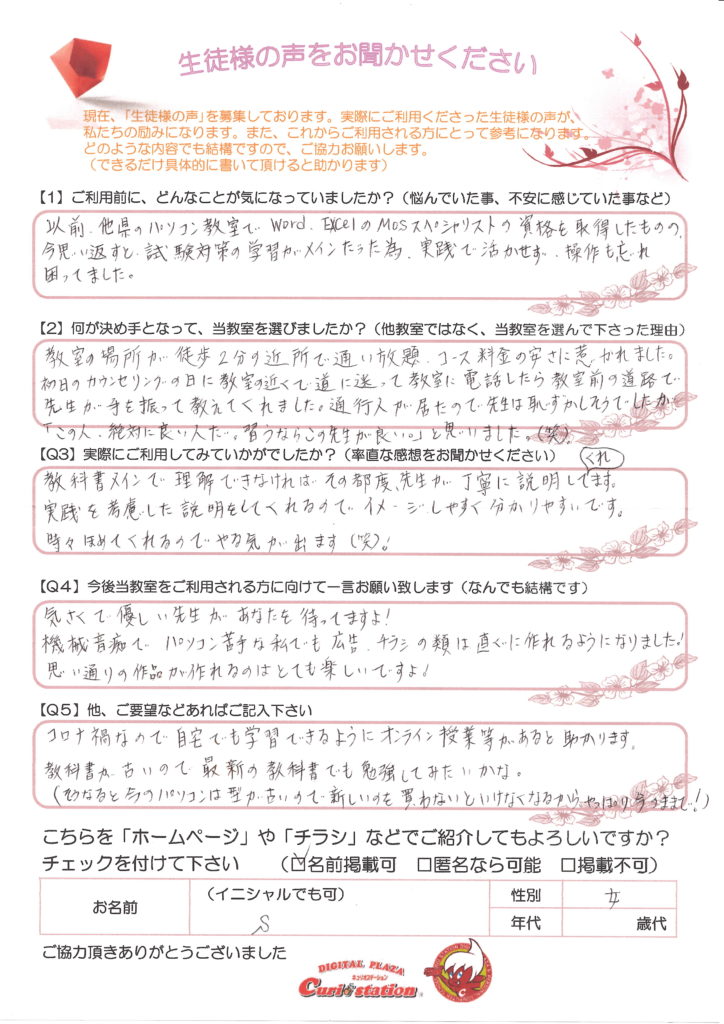 生徒様の声をお聞かせください
現在、「生徒様の声」を募集しております。実際にご利用くださった生徒様の声が、
私たちの励みになります。また、これからご利用される方にとって参考になります。
どのような内容でも結構ですので、ご協力お願いします。
（できるだけ具体的に書いて頂けると助かります）
【1】ご利用前に、どんなことが気になっていましたか？（悩んでいた事、不安に感じていた事など）
以前、他県のパソコン教室で Word、EXcelのMosスペシャリストの資格を取得したものの、
今思い返すと、試験対策の学習がメインだった為、実践で活かせず、操作も忘れ
困ってました。
【2】何が決め手となって、当教室を選びましたか？（他教室ではなく、当教室を選んで下さった理由）
教室の場所が徒歩2分の近所で通い放題、コース料金の安さに惹かれました。
初日のカウンセリングの日に教室の近くで道に迷って教室に電話したら教室前の道路で
先生が手を振って教えてくれました。通行人が居たので先生は恥ずかしそうでしたが
「この人、絶対に良い人だ。習うならこの先生が良い。」と思いました。（笑）
【Q3】実際にご利用してみていかがでしたか？（率直な感想をお聞かせください）
くれ
教科書メインで理解できなければその都度、先生が丁寧に説明してます。
実践を考慮した説明をしてくれるのでイメージしやすく分かりやすいです。
時々ほめてくれるのでやる気が出ます（笑）！
【Q4】今後当教室をご利用される方に向けて一言お願い致します（なんでも結構です）
気さくで優しい先生があなたを待ってますよ！
機械音痴で パソコン苦手な私でも広告、チラシの類は直ぐに作れるようになりました！
思い通りの作品が作れるのはとても楽しいですよ！
【Q5】他、ご要望などあればご記入下さい
コロナ禍なので自宅でも学習できるようにオンライン授業等があると助かります。
教科書が古いので最新の教科書でも勉強してみたいかな。
（そうなると今のパソコンは型が古いので新しいのを買わないといけなくなるから、やっぱり今のままで！）
こちらを「ホームページ」や「チラシ」などでご紹介してもよろしいですか？
チェックを付けて下さい （☑名前掲載可 □匿名なら可能 □掲載不可）
お名前
（イニシャルでも可）
S
性別
女
年代
歳代
ご協力頂きありがとうございました
DIGITAL PLAZA
キュリオステーション
Curio station